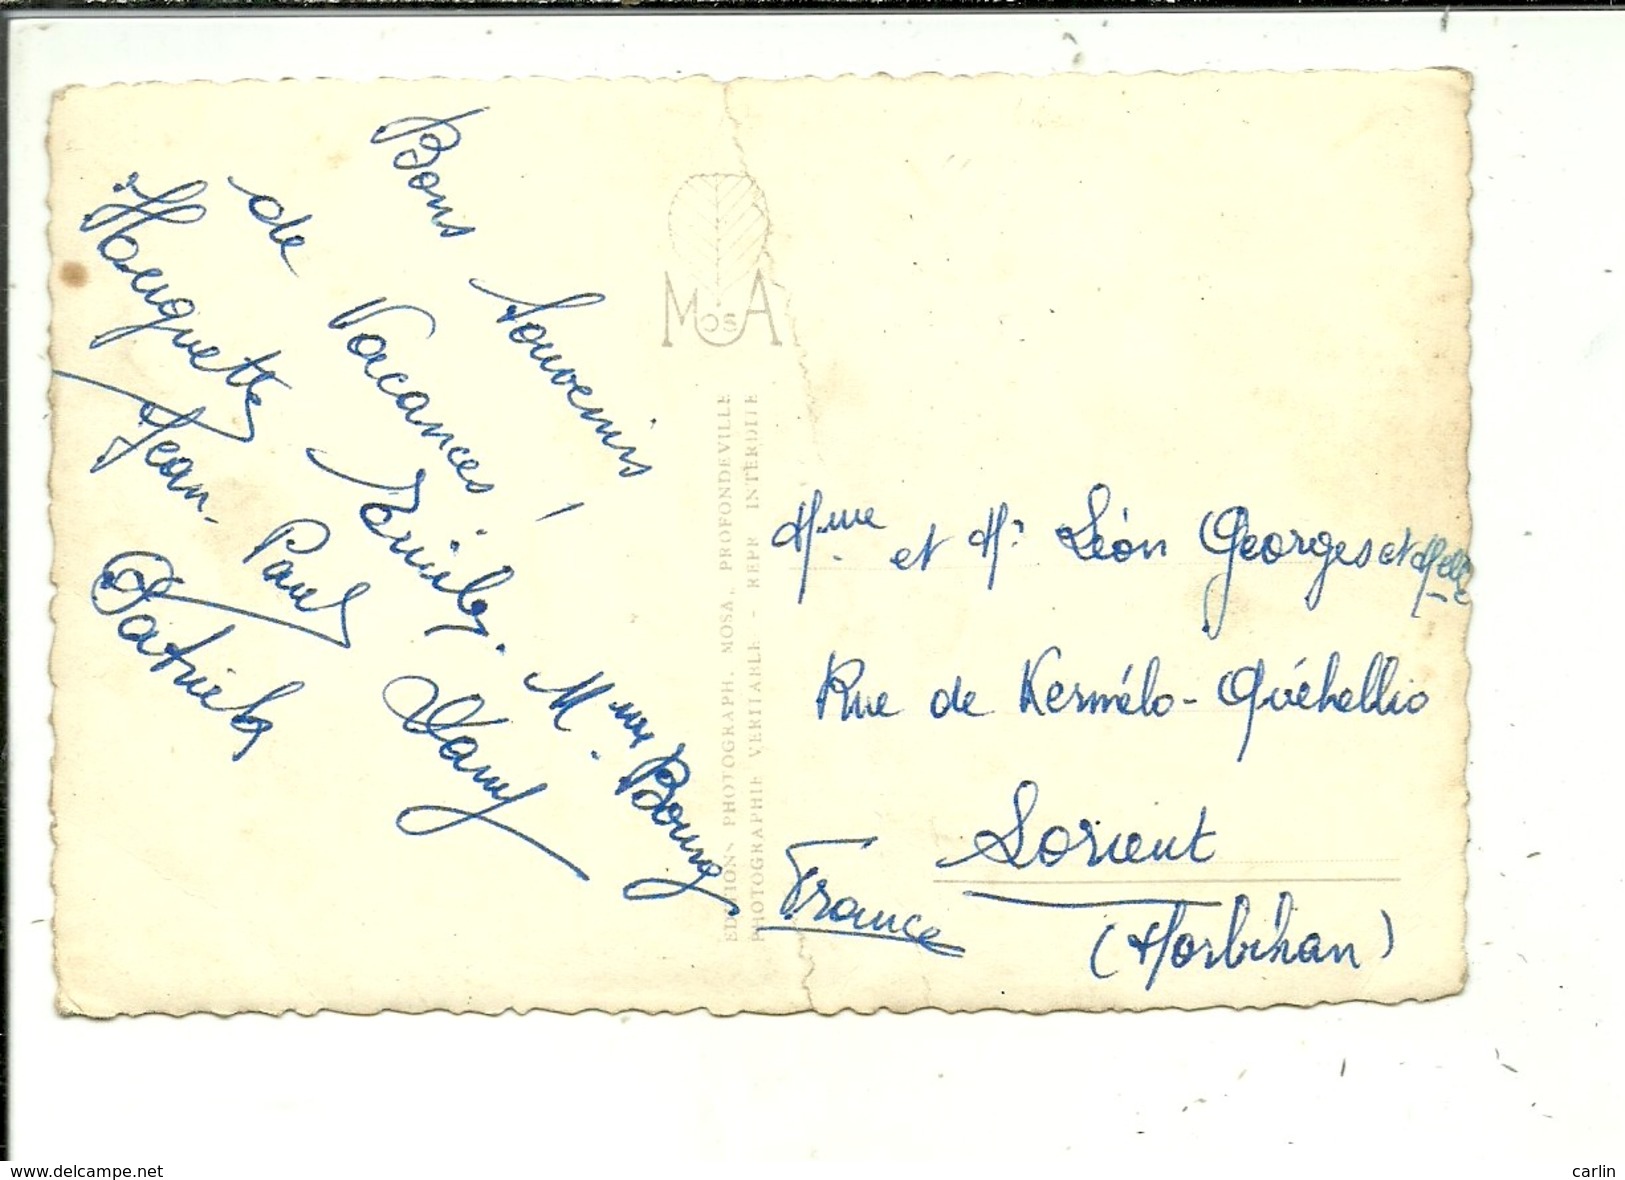 Bons Souvenirs
de Vacances !
Huguette Emile. Mme Bourg
Jean-Paul Dany
Patrick
MOSA
EDITIONS PHOTOGRAPH. MOSA, PROFONDEVILLE
PHOTOGRAPHIE VERITABLE - REPR INTERDITE
Mme et Mr Léon Georges et Melle
Rue de Kermélo-Quéhellio
Lorient
France
(Morbihan)
www.delcampe.net
carlin